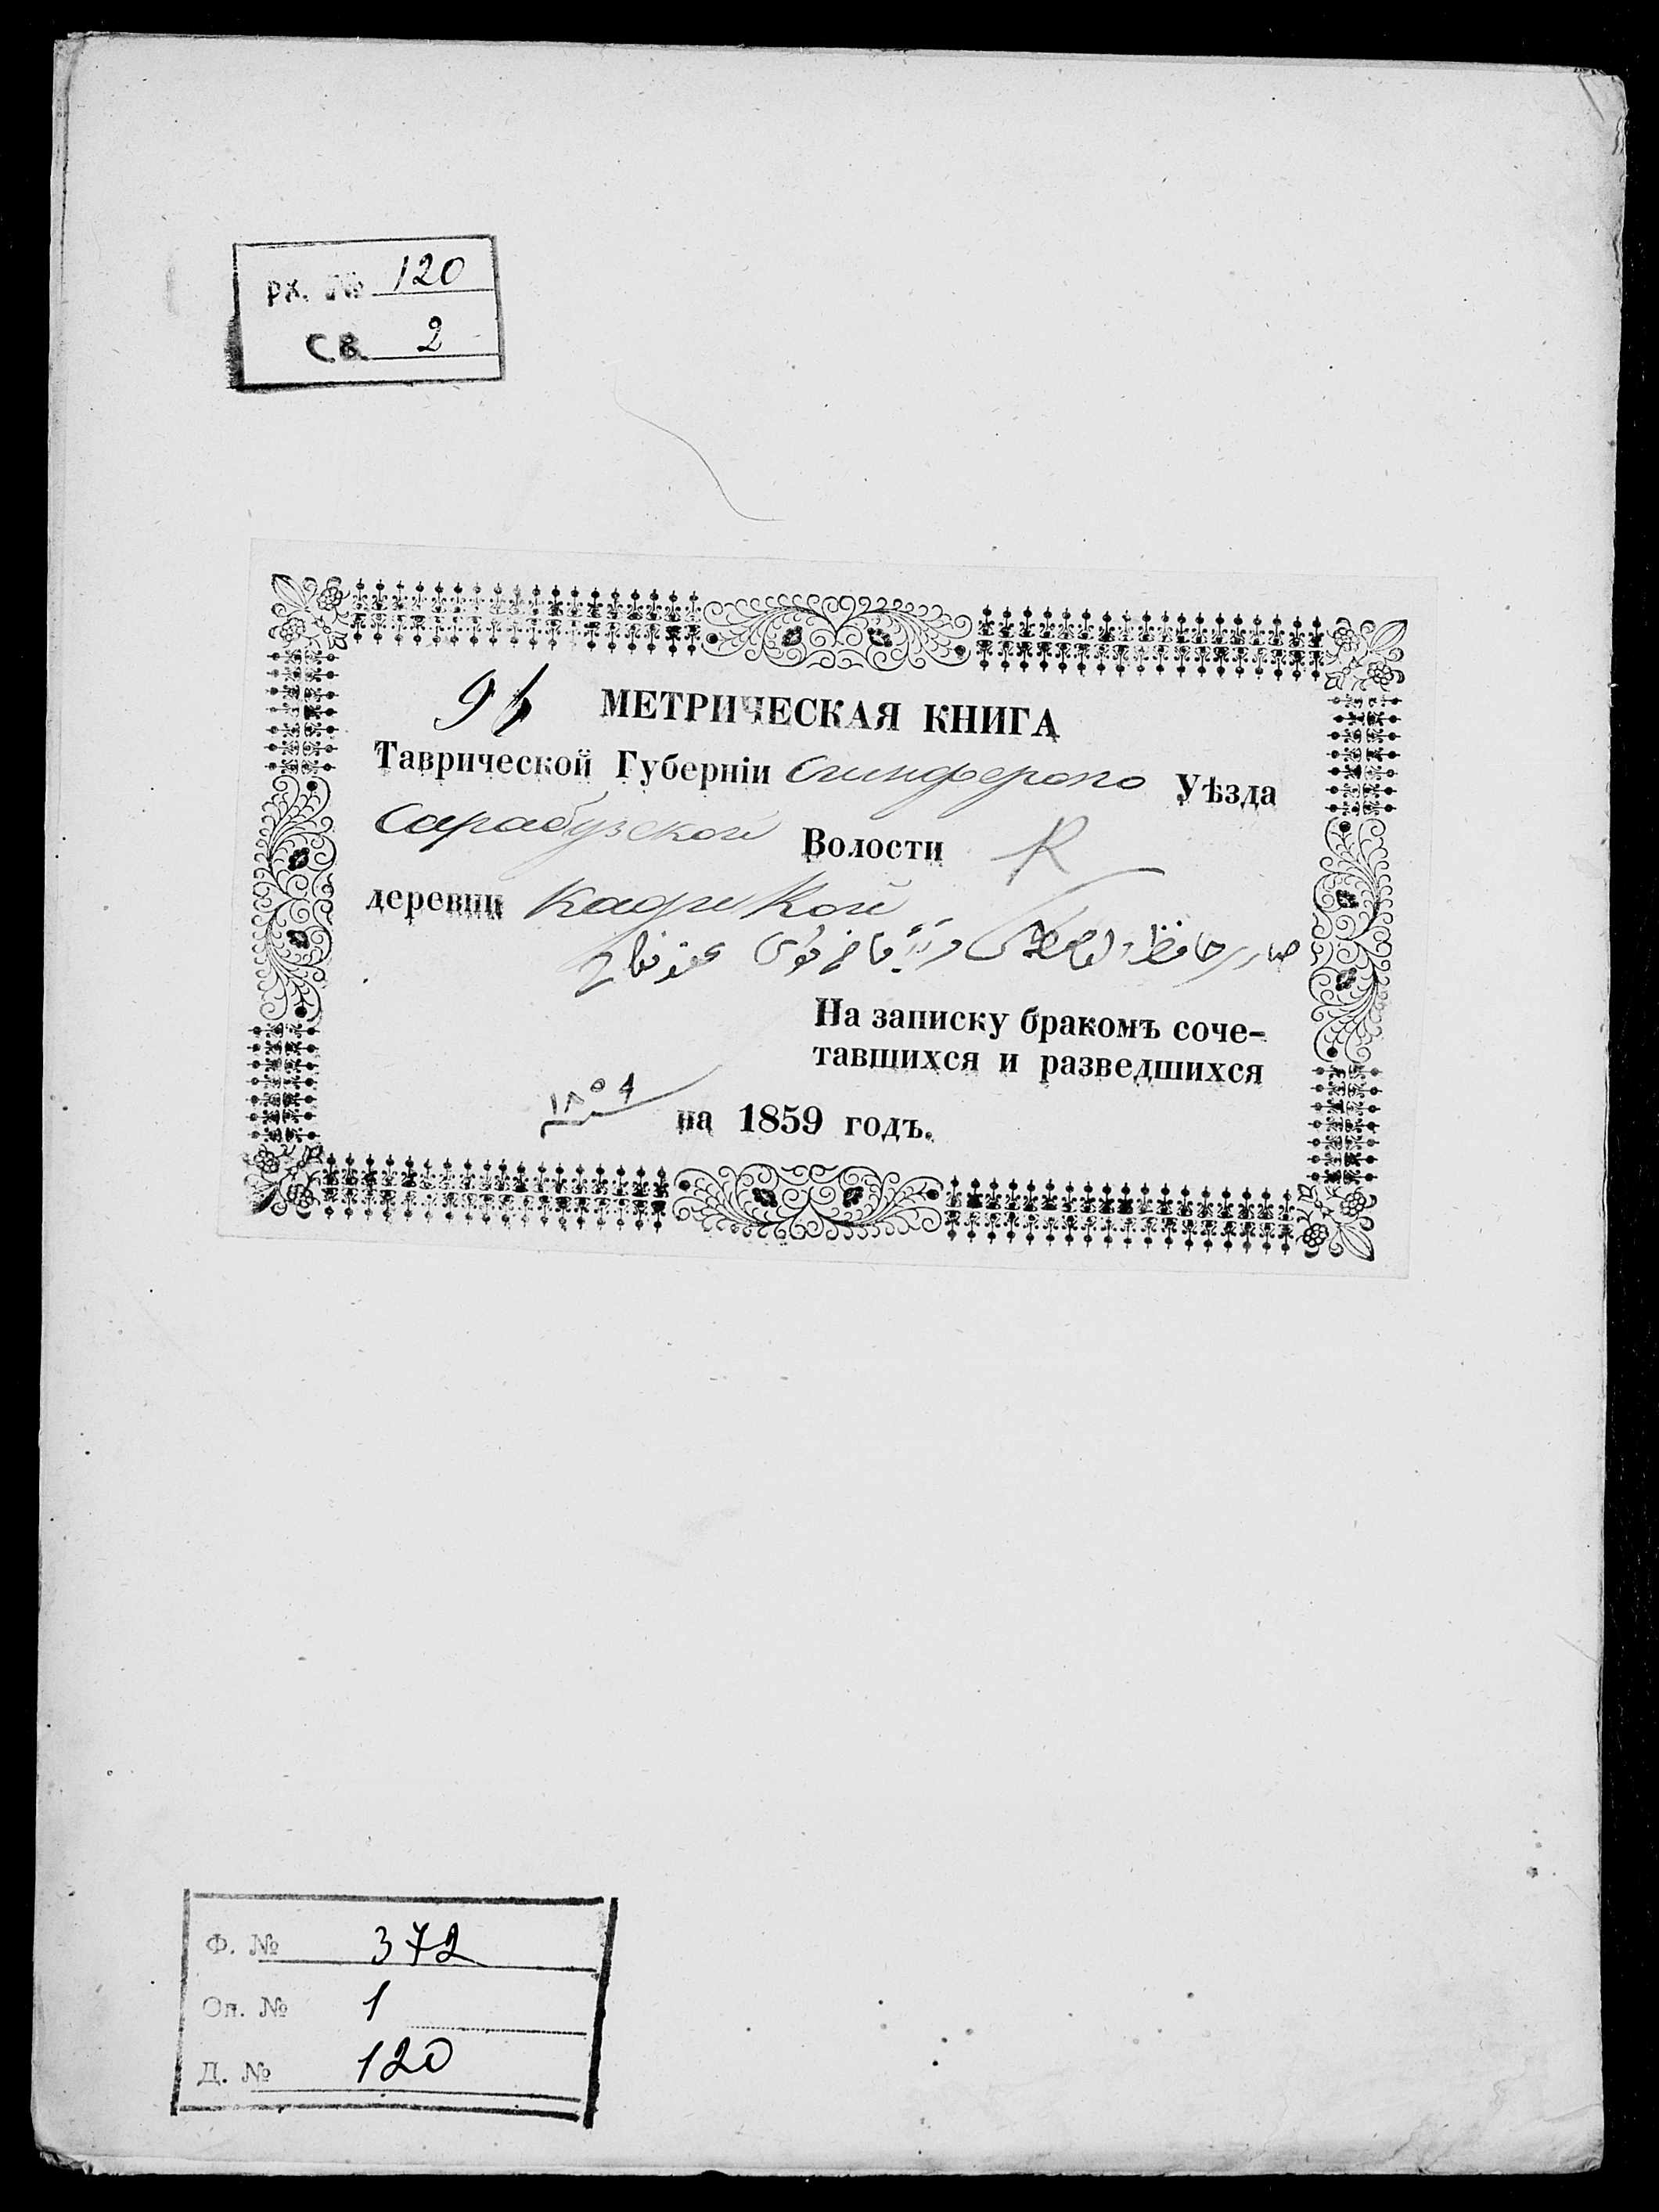 рх. № 120
св. 2
МЕТРИЧЕСКАЯ КНИГА
Таврической Губерніи Симферопо Уѣзда
Сарабузской Волости
деревни Кади Кой
На записку бракомъ соче-
тавшихся и разведшихся
١٨٥٩
на 1859 годъ.
Ф. № 372
Оп. № 1
Д. № 120